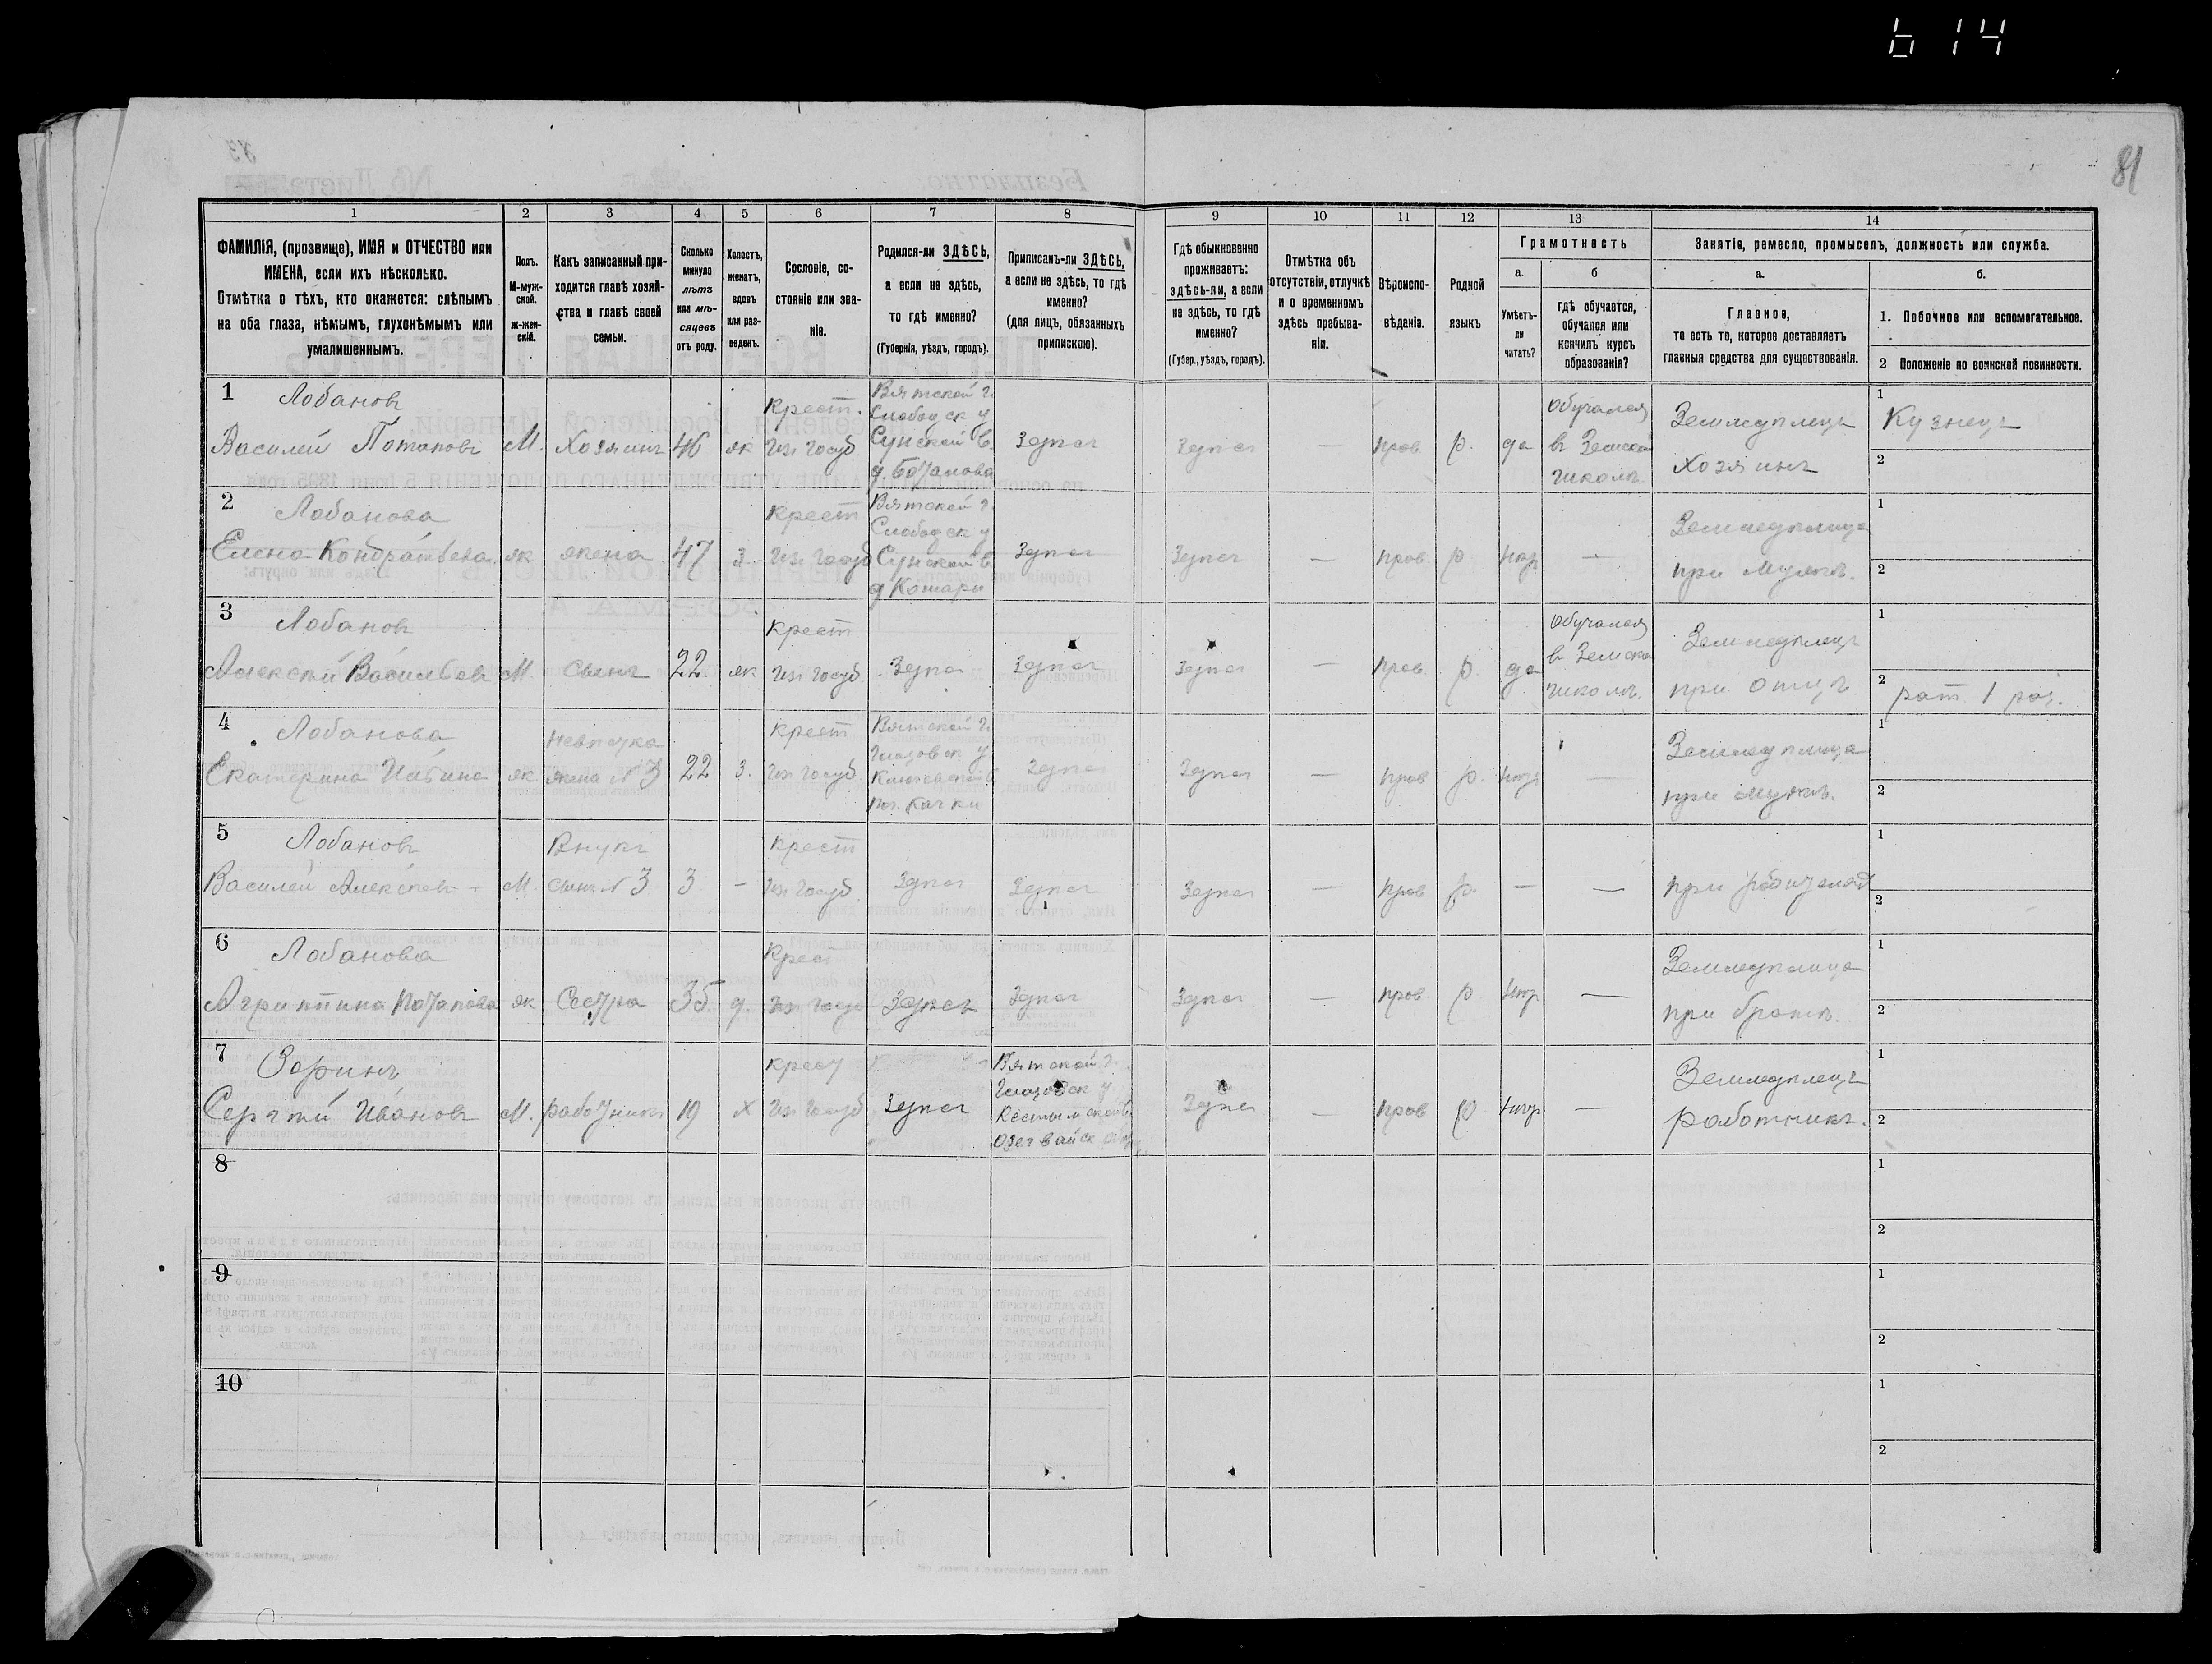 614
81
1 2 3 4 5 6 7 8 9 10 11 12 13 14
ФАМИЛІЯ, (прозвище), ИМЯ и ОТЧЕСТВО или
ИМЕНА, если ихъ нѣсколько.
Отмѣтка о тѣхъ, кто окажется: слѣпымъ
на оба глаза, нѣмымъ, глухонѣмымъ или
умалишеннымъ.
Полъ.
М-муж-
ской.
ж-жен-
скій.
Какъ записанный при-
ходится главѣ хозяй-
ства и главѣ своей
семьи.
Сколько
минуло
лѣтъ
или мѣ-
сяцевъ
отъ роду.
Холостъ,
женатъ,
вдовъ
или раз-
веденъ.
Сословіе, со-
стояніе или зва-
ніе.
Родился-ли ЗДѢСЬ,
а если не здѣсь,
то гдѣ именно?
(Губернія, уѣздъ, городъ).
Приписанъ-ли ЗДѢСЬ,
а если не здѣсь, то гдѣ
именно?
(для лицъ, обязанныхъ
припискою).
Гдѣ обыкновенно
проживаетъ:
здѣсь-ли, а если
не здѣсь, то гдѣ
именно?
(Губер., уѣздъ, городъ).
Отмѣтка объ
отсутствіи, отлучкѣ
и о временномъ
здѣсь пребыва-
ніи.
Вѣроиспо-
вѣданіе.
Родной
языкъ
Грамотность
а.
Умѣетъ-
ли
читать?
б
гдѣ обучается,
обучался или
кончилъ курсъ
образованія?
Занятіе, ремесло, промыселъ, должность или служба.
а.
Главное,
то есть то, которое доставляетъ
главныя средства для существованія.
б.
1. Побочное или вспомогательное.
2 Положеніе по воинской повинности.
1 Лобановъ
Василей Потаповъ
М. Хозяинъ 46 ж
Крест.
изъ госуд
Вятской г.
Слободск у
Сунской в
д. Ботамова
Здѣсь
Здѣсь — прав р. да
обучался
въ Земской
школѣ.
Земледѣлецъ
хозяинъ
1
Кузнецъ
2
2 Лобанова
Елена Кондратьева
ж жена 47 з.
крест
изъ госуд
Вятской г.
Слободск у
Сунской в
д Комары
Здѣсь
Здѣсь — прав р нѣтъ —
Земледѣлица
при мужѣ.
1
2
3 Лобановъ
Алексѣй Васильев
М. сынъ 22 ж
крест
изъ госуд
Здѣсь Здѣсь
Здѣсь — прав р. да
обучался
въ Земской
школѣ.
Земледѣлецъ
при отцѣ
1
2 рат. 1 раз.
4 Лобанова
Екатерина Ильина
ж
невѣстка
жена № 3
22 з.
крест
изъ госуд
Вятской г.
Глазовск у
Здѣсь
Здѣсь — прав р. нѣтъ —
Земледѣлица
при мужѣ.
1
2
5 Лобановъ
Василей Алексѣев
М.
Внукъ
сынъ № 3
3 —
крест
изъ госуд
Здѣсь Здѣсь
Здѣсь — прав р. — —
при родителях
1
2
6 Лобанова
Агрипина Потапова
ж Сестра 35 д.
Крест
изъ госуд
Здѣсь Здѣсь
Здѣсь — прав р нѣтъ —
Земледѣлица
при братѣ.
1
2
7 Зоринъ
Сергѣй Ивановъ
М. работникъ 19 х
крест
изъ госуд
Здѣсь
Вятской г.
Глазовск у
Здѣсь — прав р нѣтъ —
Земледѣлецъ
работникъ.
1
2
8
1
2
9
1
2
10
1
2